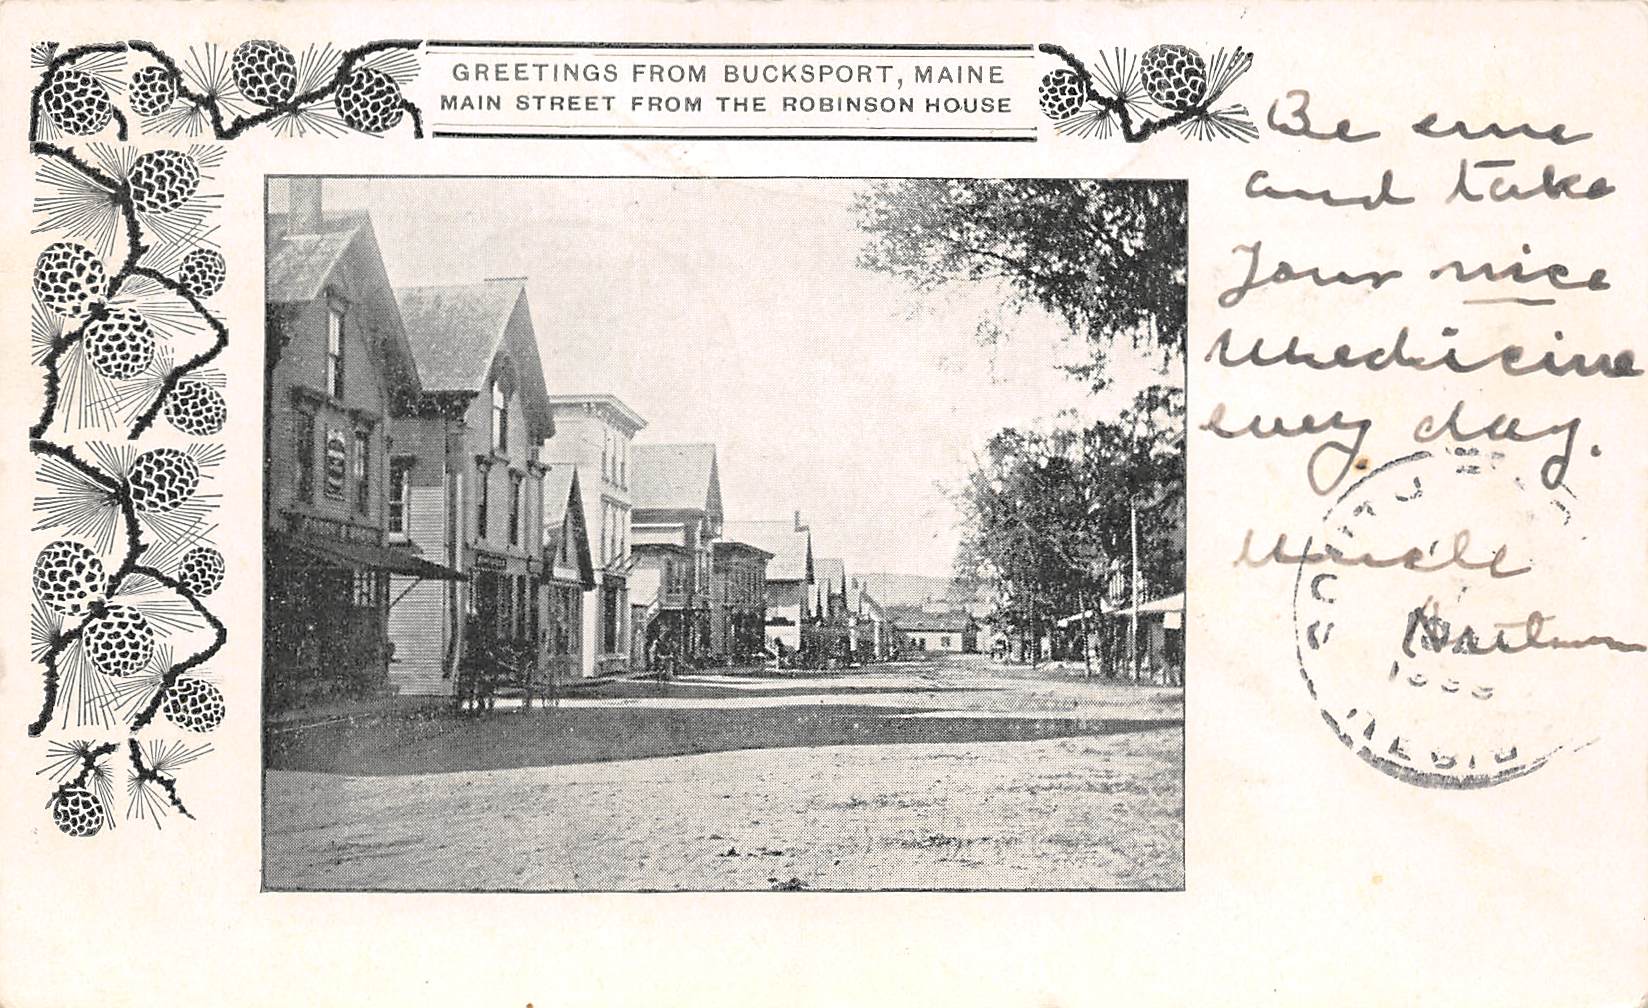 GREETINGS FROM BUCKSPORT, MAINE
MAIN STREET FROM THE ROBINSON HOUSE
Be sure
and take
Your nice
Medicine
every day.
Uncle